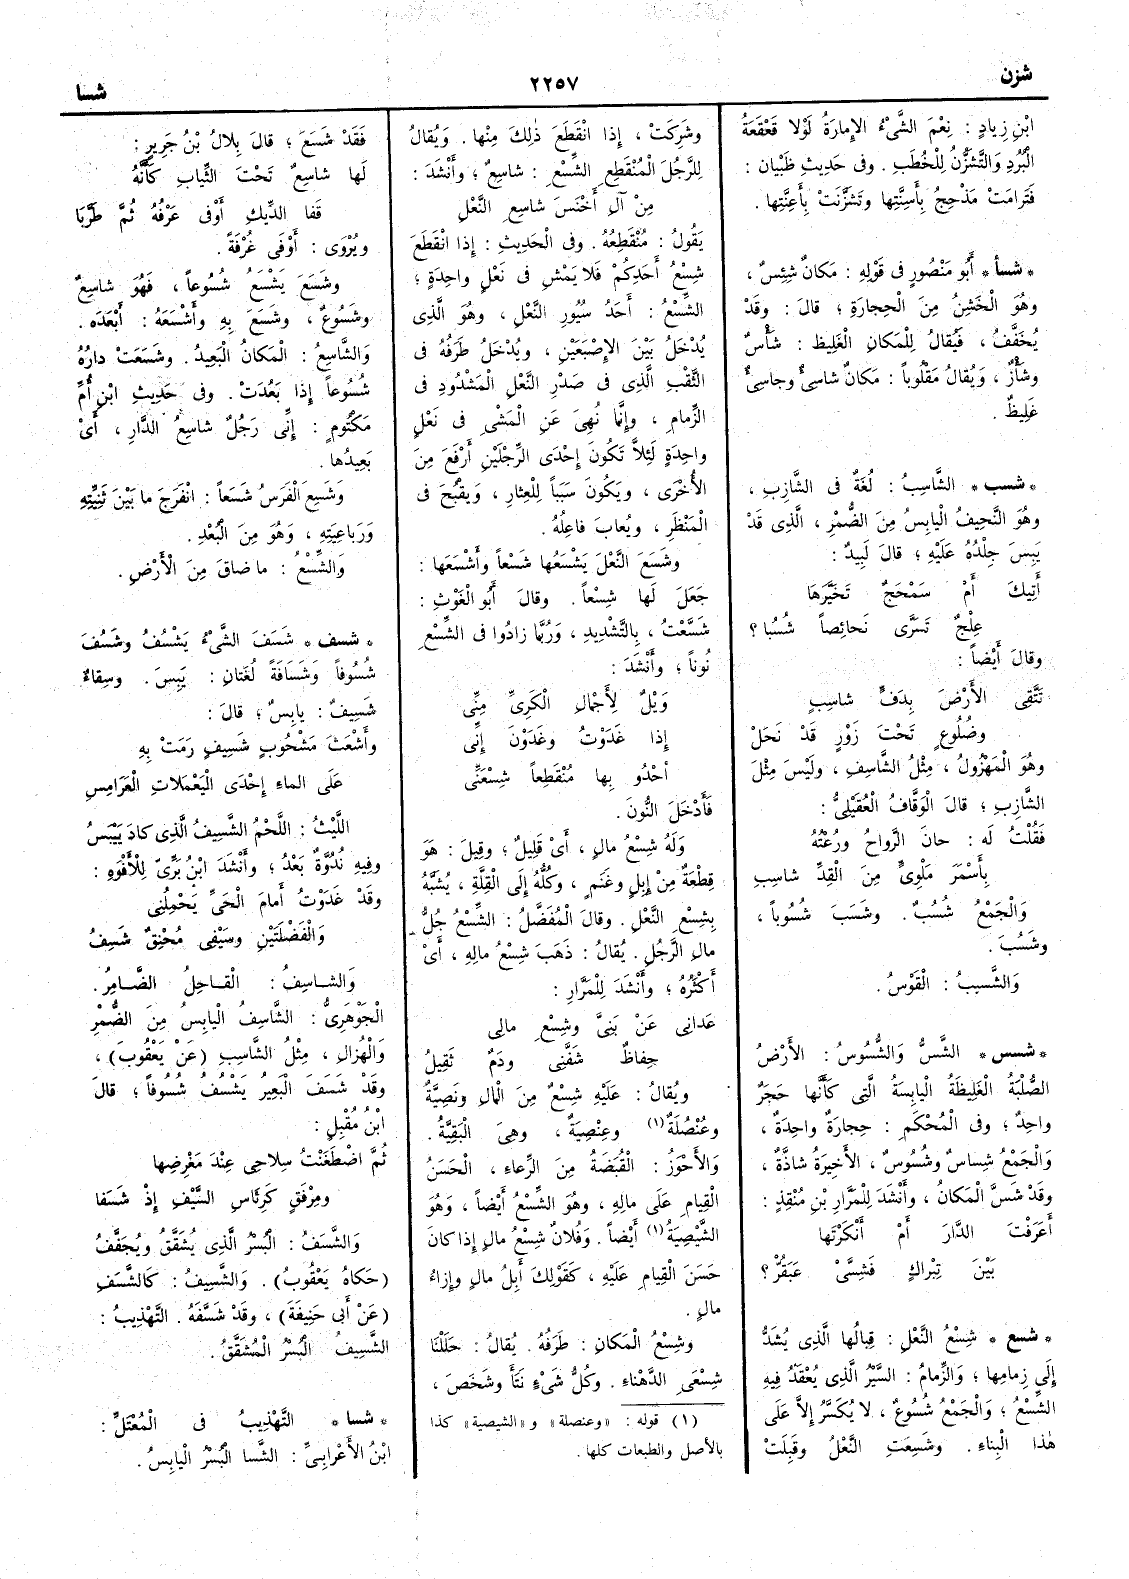 شزن
٢٢٥٧
شسا
ابْنِ زِيادٍ : نِعْمَ الشَّىْءُ الإِمارَةُ لَوْلا قَعْقَعَةُ
الْبُرُدِ وَالتَّشَزُّنُ لِلْخُطَبِ . وفى حَدِيثِ ظَبْيانَ :
فَتَرامَتْ مَذْحِجُ بِأَسِنَّتِها وتَشَزَّنَتْ بِأَعِنَّتِها .
* شسأ * أَبُو مَنْصُورٍ فى قَوْلِهِ : مَكانٌ شَئِسٌ ،
وهُوَ الْخَشِنُ مِنَ الْحِجارَةِ ؛ قالَ : وقَدْ
يُخَفَّفُ ، فَيُقالُ لِلْمَكانِ الْغَلِيظِ : شَأْسٌ
وشَأْزٌ ، ويُقالُ مَقْلُوباً : مَكانٌ شاسِئٌ وجاسِئٌ
غَلِيظٌ .
* شسب * الشَّاسِبُ : لُغَةٌ فى الشَّازِبِ ،
وهُوَ النَّحِيفُ الْيابِسُ مِنَ الضُّمْرِ ، الَّذِى قَدْ
يَبِسَ جِلْدُهُ عَلَيْهِ ؛ قالَ لَبِيدٌ :
أَتِيكَ أَمْ سَمْحَجٌ تَخَيَّرَهَا
عِلْجٌ تَسَرَّى نَحائِصاً شُسُبا ؟
وقالَ أَيْضاً :
تَتَّقِى الأَرْضَ بِدَفٍّ شاسِبٍ
وضُلُوعٍ تَحْتَ زَوْرٍ قَدْ نَحَلْ
وهُوَ الْمَهْزُولُ ، مِثْلُ الشَّاسِفِ ، ولَيْسَ مِثْلَ
الشَّازِبِ ؛ قالَ الْوَقَّافُ الْعُقَيْلِىُّ :
فَقُلْتُ لَه : حانَ الرَّواحُ ورُعْتُهُ
بِأَسْمَرَ مَلْوِىٍّ مِنَ الْقِدِّ شاسِبِ
وَالْجَمْعُ شُسُبٌ . وشَسَبَ شُسُوباً ،
وشَسُبَ .
وَالشَّسِيبُ : الْقَوْسُ .
* شسس * الشَّسُّ وَالشُّسُوسُ : الأَرْضُ
الصُّلْبَةُ الْغَلِيظَةُ الْيابِسَةُ الَّتِى كَأَنَّها حَجَرٌ
واحِدٌ ؛ وفى الْمُحْكَمِ : حِجارَةٌ واحِدَةٌ ،
وَالْجَمْعُ شِساسٌ وشُسُوسٌ ، الأَخِيرَةُ شاذَّةٌ ،
وقَدْ شَسَّ الْمَكانُ ، وأَنْشَدَ لِلْمَرَّارِ بْنِ مُنْقِذٍ :
أَعَرَفْتَ الدَّارَ أَمْ أَنْكَرْتَها
بَيْنَ تِبْراكٍ فَشِسَّىْ عَبَقُرّْ ؟
* شسع * شِسْعُ النَّعْلِ : قِبالُها الَّذِى يُشَدُّ
إِلَى زِمامِها ؛ وَالزِّمامُ : السَّيْرُ الَّذِى يُعْقَدُ فِيهِ
الشِّسْعُ ؛ وَالْجَمْعُ شُسُوعٌ ، لا يُكَسَّرُ إِلاَّ عَلَى
هٰذا الْبِناءِ . وشَسِعَتِ النَّعْلُ وقَبِلَتْ
وشَرِكَتْ ، إِذا انْقَطَعَ ذٰلِكَ مِنْها . ويُقالُ
لِلرَّجُلِ الْمُنْقَطِعِ الشِّسْعِ : شاسِعٌ ؛ وأَنْشَدَ :
مِنْ آلِ أَخْنَسَ شاسِعِ النَّعْلِ
يَقُولُ : مُنْقَطِعُهُ . وفى الْحَدِيثِ : إِذا انْقَطَعَ
شِسْعُ أَحَدِكُمْ فَلا يَمْشِ فى نَعْلٍ واحِدَةٍ ؛
الشِّسْعُ : أَحَدُ سُيُورِ النَّعْلِ ، وهُوَ الَّذِى
يُدْخَلُ بَيْنَ الإِصْبَعَيْنِ ، ويُدْخَلُ طَرَفُهُ فى
الثَّقْبِ الَّذِى فى صَدْرِ النَّعْلِ الْمَشْدُودِ فى
الزِّمامِ ، وإِنَّما نُهِىَ عَنِ الْمَشْىِ فى نَعْلٍ
واحِدَةٍ لَئِلاَّ تَكُونَ إِحْدَى الرِّجْلَيْنِ أَرْفَعَ مِنَ
الأُخْرَى ، ويَكُونَ سَبَباً لِلْعِثارِ ، ويَقْبُحَ فى
الْمَنْظَرِ ، ويُعابَ فاعِلُهُ .
وشَسَعَ النَّعْلَ يَشْسَعُها شَسْعاً وأَشْسَعَها :
جَعَلَ لَها شِسْعاً . وقالَ أَبُو الْغَوْثِ :
شَسَّعْتُ ، بِالتَّشْدِيدِ ، ورُبَّما زادُوا فى الشِّسْعِ
نُوناً ؛ وأَنْشَدَ :
وَيْلٌ لِأَجْمالِ الْكَرِىِّ مِنِّى
إِذا غَدَوْتُ وغَدَوْنَ إِنِّى
أَحْدُو بِها مُنْقَطِعاً شِسْعَنِّى
فَأَدْخَلَ النُّونَ .
وَلَهُ شِسْعُ مالٍ ، أَىْ قَلِيلٌ ؛ وقِيلَ : هُوَ
قِطْعَةٌ مِنْ إِبِلٍ وغَنَمٍ ، وكُلُّهُ إِلَى الْقِلَّةِ ، يُشَبَّهُ
بِشِسْعِ النَّعْلِ . وقالَ الْمُفَضَّلُ : الشِّسْعُ جُلُّ
مالِ الرَّجُلِ . يُقالُ : ذَهَبَ شِسْعُ مالِهِ ، أَىْ
أَكْثَرُهُ ؛ وأَنْشَدَ لِلْمَرَّارِ :
عَدانِى عَنْ بَنِىَّ وشِسْعِ مالِى
حِفاظٌ شَفَّنِى ودَمٌ ثَقِيلُ
ويُقالُ : عَلَيْهِ شِسْعٌ مِنَ الْمالِ ونَصِيَّةٌ
وعُنْصُلَةٌ (١) وعِنْصِيَةٌ ، وهِىَ الْبَقِيَّةُ .
وَالأَحْوَزُ : الْقُبَضَةُ مِنَ الرِّعاءِ ، الْحَسَنُ
الْقِيامِ عَلَى مالِهِ ، وهُوَ الشِّسْعُ أَيْضاً ، وَهُوَ
الشَّيْصِيَةُ (١) أَيْضاً . وفُلانٌ شِسْعُ مالٍ إِذا كانَ
حَسَنَ الْقِيامِ عَلَيْهِ ، كَقَوْلِكَ أَبِلُ مالٍ وإِزاءُ
مالٍ .
وشِسْعُ الْمَكانِ : طَرَفُهُ . يُقالُ : حَلَلْنَا
شِسْعَىِ الدَّهْناءِ . وكُلُّ شَىْءٍ نَتَأَ وشَخَصَ ،
(١) قوله : «وعنصلة» و «الشيصية» كذا
بالأصل والطبعات كلها .
فَقَدْ شَسَعَ ؛ قالَ بِلالُ بْنُ جَرِيرٍ :
لَها شاسِعٌ تَحْتَ الثِّيابِ كَأَنَّهُ
قَفا الدِّيكِ أَوْفى عَرْفُهُ ثُمَّ طَرَّبَا
ويُرْوَى : أَوْفَى غُرْفَةً .
وشَسَعَ يَشْسَعُ شُسُوعاً ، فَهُوَ شاسِعٌ
وشَسُوعٌ ، وشَسَعَ بِهِ وأَشْسَعَهُ : أَبْعَدَه .
وَالشَّاسِعُ : الْمَكانُ الْبَعِيدُ . وشَسَعَتْ دارُهُ
شُسُوعاً إِذا بَعُدَتْ . وفى حَدِيثِ ابْنِ أُمِّ
مَكْتُومٍ : إِنِّى رَجُلٌ شاسِعُ الدَّارِ ، أَىْ
بَعِيدُها .
وَشَسِعَ الْفَرَسُ شَسَعاً : انْفَرَجَ ما بَيْنَ ثَنِيَّتِهِ
وَرَباعِيَتِهِ ، وَهُوَ مِنَ الْبُعْدِ .
وَالشَّسْعُ : ما ضاقَ مِنَ الأَرْضِ .
* شسف * شَسَفَ الشَّىْءُ يَشْسُفُ وشَسُفَ
شُسُوفاً وَشَسَافَةً لُغَتانِ : يَبِسَ . وسِقاءٌ
شَسِيفٌ : يابِسٌ ؛ قالَ :
وأَشْعَثَ مَشْحُوبٍ شَسِيفٍ رَمَتْ بِهِ
عَلَى الماءِ إِحْدَى الْيَعْمَلاتِ الْعَرامِسِ
اللَّيْثُ : اللَّحْمُ الشَّسِيفُ الَّذِى كادَ يَيْبَسُ
وفِيهِ نُدُوَّةٌ بَعْدُ ؛ وأَنْشَدَ ابْنُ بَرِّىّ لِلأَفْوَهِ :
وقَدْ غَدَوْتُ أَمامَ الْحَىِّ يَحْمِلُنِى
وَالْفَضْلَتَيْنِ وسَيْفِى مُحْنِقٌ شَسِفُ
وَالشاسِفُ : الْقاحِلُ الضَّامِرُ .
الْجَوْهَرِىُّ : الشَّاسِفُ الْيابِسُ مِنَ الضُّمْرِ
وَالْهُزالِ ، مِثْلُ الشَّاسِبِ (عَنْ يَعْقُوبَ) ،
وقَدْ شَسَفَ الْبَعِيرُ يَشْسُفُ شُسُوفاً ؛ قالَ
ابْنُ مُقْبِلٍ :
ثُمَّ اضْطَغَنْتُ سِلاحِى عِنْدَ مَغْرِضِها
ومِرْفَقٍ كَرِئاسِ السَّيْفِ إِذْ شَسَفا
وَالشَّسَفُ : الْبُسْرُ الَّذِى يُشَقَّقُ ويُجَفَّفُ
(حَكاهُ يَعْقُوبُ) . وَالشَّسِيفُ : كَالشَّسَفِ
(عَنْ أَبِى حَنِيفَةَ) ، وقَدْ شَسَّفَهُ . التَّهْذِيبُ :
الشَّسِيفُ الْبُسْرُ الْمُشَقَّقُ .
* شسا * التَّهْذِيبُ فى الْمُعْتَلِّ :
ابْنُ الأَعْرابِىِّ : الشَّسا الْبُسْرُ الْيابِسُ .